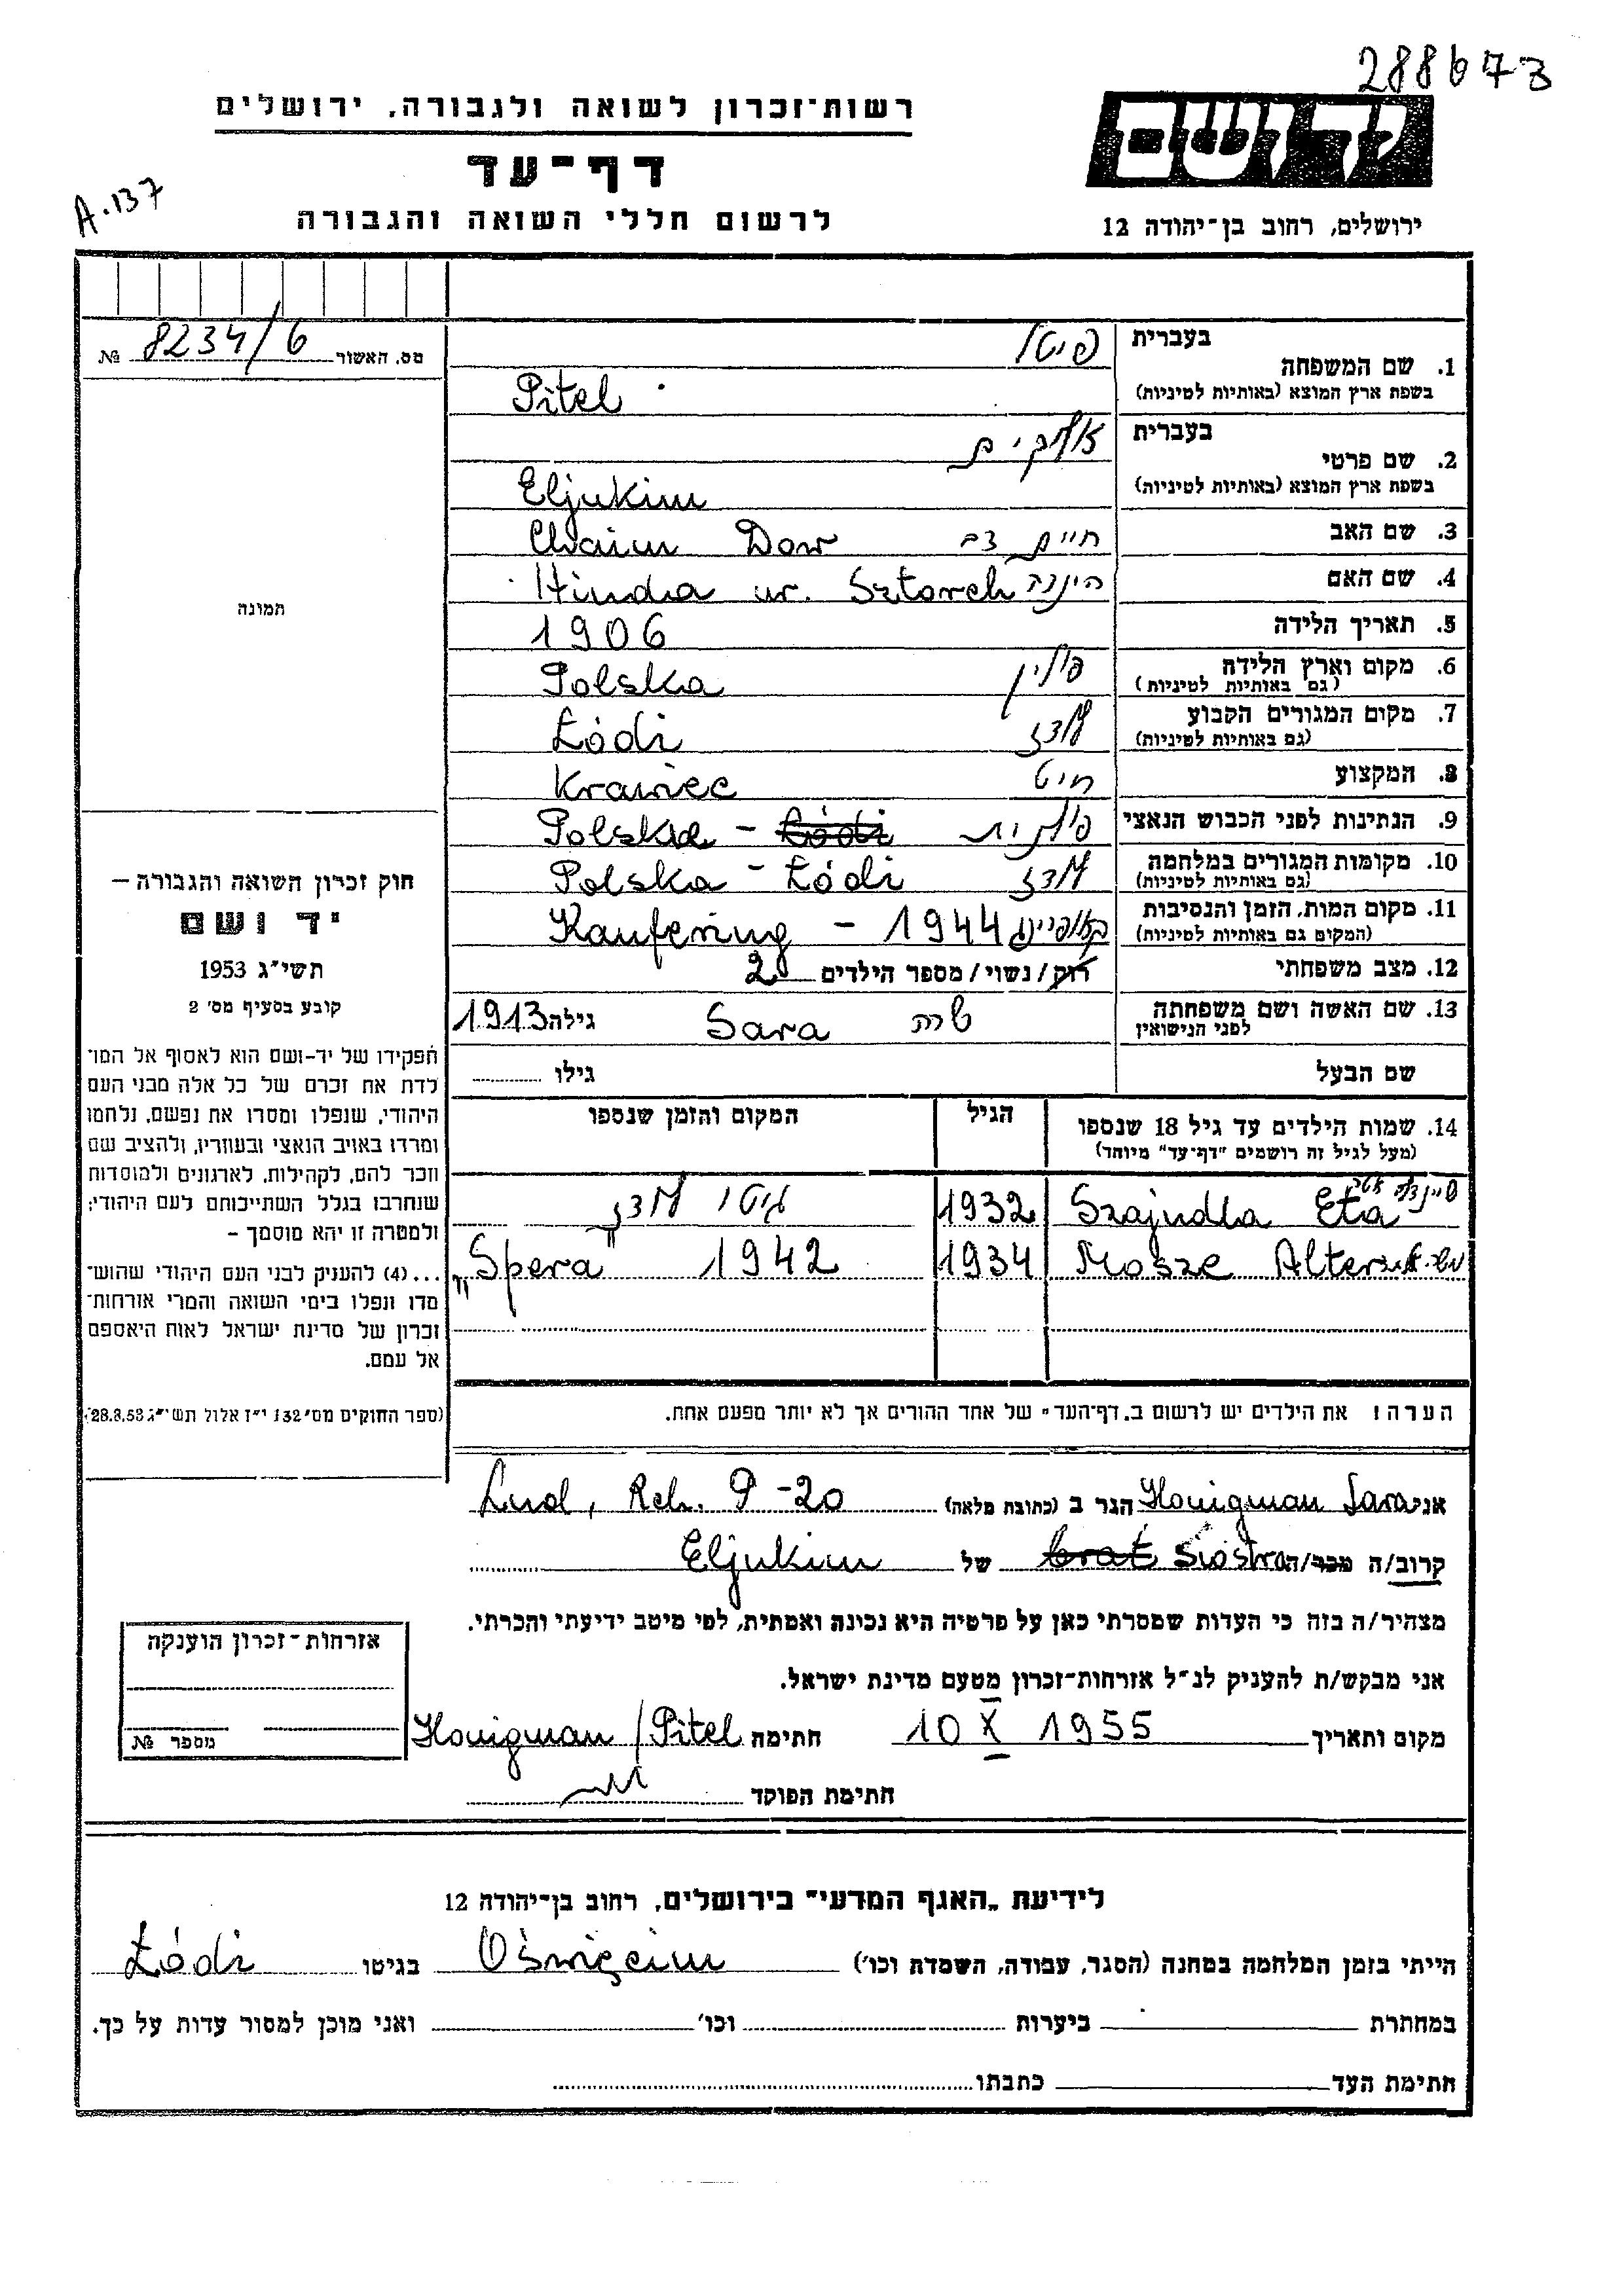 288673
רשות־זכרון לשואה ולגבורה, ירושלים
יד ושם
דף־עד
A.137
לרשום חללי השואה והגבורה
ירושלים, רחוב בן־יהודה 12
מס. האשור 8234/6 №
בעברית פיטל
1. שם המשפחה
בשפת ארץ המוצא (באותיות לטיניות) Pitel
בעברית אליקים
2. שם פרטי
בשפת ארץ המוצא (באותיות לטיניות) Eljukim
3. שם האב חיים דב Chaim Dow
4. שם האם הינדה Hindha ur. Sztorch
5. תאריך הלידה 1906
6. מקום וארץ הלידה פולין Polska
(גם באותיות לטיניות)
7. מקום המגורים הקבוע לודז Łódź
(גם באותיות לטיניות)
8. המקצוע חיט Krawiec
9. הנתינות לפני הכבוש הנאצי פולנית Polska – Łódź
10. מקומות המגורים במלחמה לודז Polska – Łódź
(גם באותיות לטיניות)
11. מקום המות, הזמן והנסיבות קאופרינג Kaufering – 1944
(המקום גם באותיות לטיניות)
12. מצב משפחתי רוק/נשוי/מספר הילדים 2
13. שם האשה ושם משפחתה שרה Sara גילה 1913
לפני הנישואין
שם הבעל גילו
14. שמות הילדים עד גיל 18 שנספו הגיל המקום והזמן שנספו
(מעל לגיל זה רושמים "דף־עד" מיוחד)
שיינדלה אטה Szajndla Eta 1932 גיטו לודז
Mosze Alter 1934 "Spera" 1942
הערה: את הילדים יש לרשום ב„דף־העד" של אחד ההורים אך לא יותר מפעם אחת.
תמונה
חוק זכרון השואה והגבורה –
יד ושם
תשי"ג 1953
קובע בסעיף מס' 2
תפקידו של יד-ושם הוא לאסוף אל המו־
לדת את זכרם של כל אלה מבני העם
היהודי, שנפלו ומסרו את נפשם, נלחמו
ומרדו באויב הנאצי ובעוזריו, ולהציב שם
וזכר להם, לקהילות, לארגונים ולמוסדות
שנחרבו בגלל השתייכותם לעם היהודי;
ולמטרה זו יהא מוסמך –
...(4) להעניק לבני העם היהודי שהוש־
מדו ונפלו בימי השואה והמרי אזרחות־
זכרון של מדינת ישראל לאות היאספם
אל עמם.
(ספר החוקים מס' 132 י"ז אלול תשי"ג 28.8.53)
אני Honigman Sara הגר ב (כתובת מלאה) Lud, Reh. 9 - 20
קרוב/ה מכר/ה brat Siostra של Eljukim
מצהיר/ה בזה כי העדות שמסרתי כאן על פרטיה היא נכונה ואמתית, לפי מיטב ידיעתי והכרתי.
אני מבקש/ת להעניק לנ"ל אזרחות־זכרון מטעם מדינת ישראל.
מקום ותאריך 10 X 1955 חתימה Honigman / Pitel
חתימת הפוקד
אזרחות־זכרון הוענקה
מספר №
לידיעת „האגף המדעי" בירושלים, רחוב בן־יהודה 12
הייתי בזמן המלחמה במחנה (הסגר, עבודה, השמדת וכו') Oświęcim בגיטו Łódź
במחתרת ביערות וכו' ואני מוכן למסור עדות על כך.
חתימת העד כתבתו